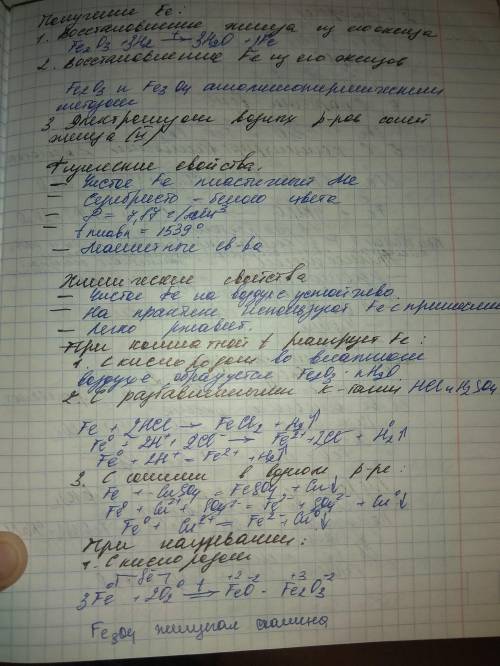 Получение Fe:
1. Восстановление железа из его оксида
Fe2O3 + 3H2 t→ 3H2O + 2Fe
2. Восстановление Fe из его оксидов
Fe2O3 и Fe3O4 алюминотермическим
методом
3. Электролизом водных р-ров солей
железа (II)
Физические свойства.
— Чистое Fe пластичный Ме
— Серебристо - белого цвета
— ρ = 7,87 г/см3
— t плавл = 1539°
— Магнитные св-ва
Химические свойства
— Чистое Fe на воздухе устойчиво.
— На практике используют Fe с примесями
— Легко ржавеет.
При комнатной t реагирует Fe:
1. С кислородом во влажном
воздухе, образуется Fe2O3 · nH2O
2. С разбавленными к-тами HCl и H2SO4
Fe + 2HCl → FeCl2 + H2↑
Fe0 + 2H+ + 2Cl- → Fe2+ + 2Cl- + H20↑
Fe0 + 2H+ = Fe2+ + H2↑
3. С солями в водном р-ре:
Fe + CuSO4 = FeSO4 + Cu↓
Fe0 + Cu2+ + SO42- = Fe2+ + SO42- + Cu0↓
Fe0 + Cu2+ = Fe2+ + Cu0↓
При нагревании:
1. С кислородом
3Fe + 2O20 t→ +2 -2 FeO · +3 -2 Fe2O3
Fe3O4 железная окалина